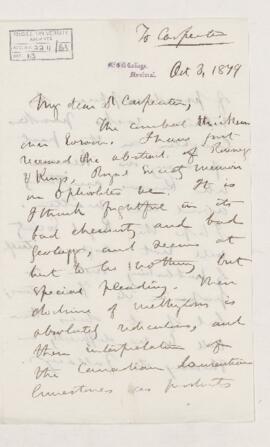 To Carpenter
McGILL UNIVERSITY
ARCHIVES
ACC. NO. 2211/65
REF. 63
McGill College,
Montreal.
Oct 3, 1879
My dear Dr Carpenter,
The combat thickens
over Eozoon. I have just
received the abstract of Rowney
& King's, Royal Society memoir
on ophiolites &c. It is
I think frightful in its
bad chemistry and bad
Geology, and seems at
best to be nothing but
special pleading. Their
doctrine of methylosis is
absolutely ridiculous, and
their interpretation of
the Canadian Laurentian
limestones as products